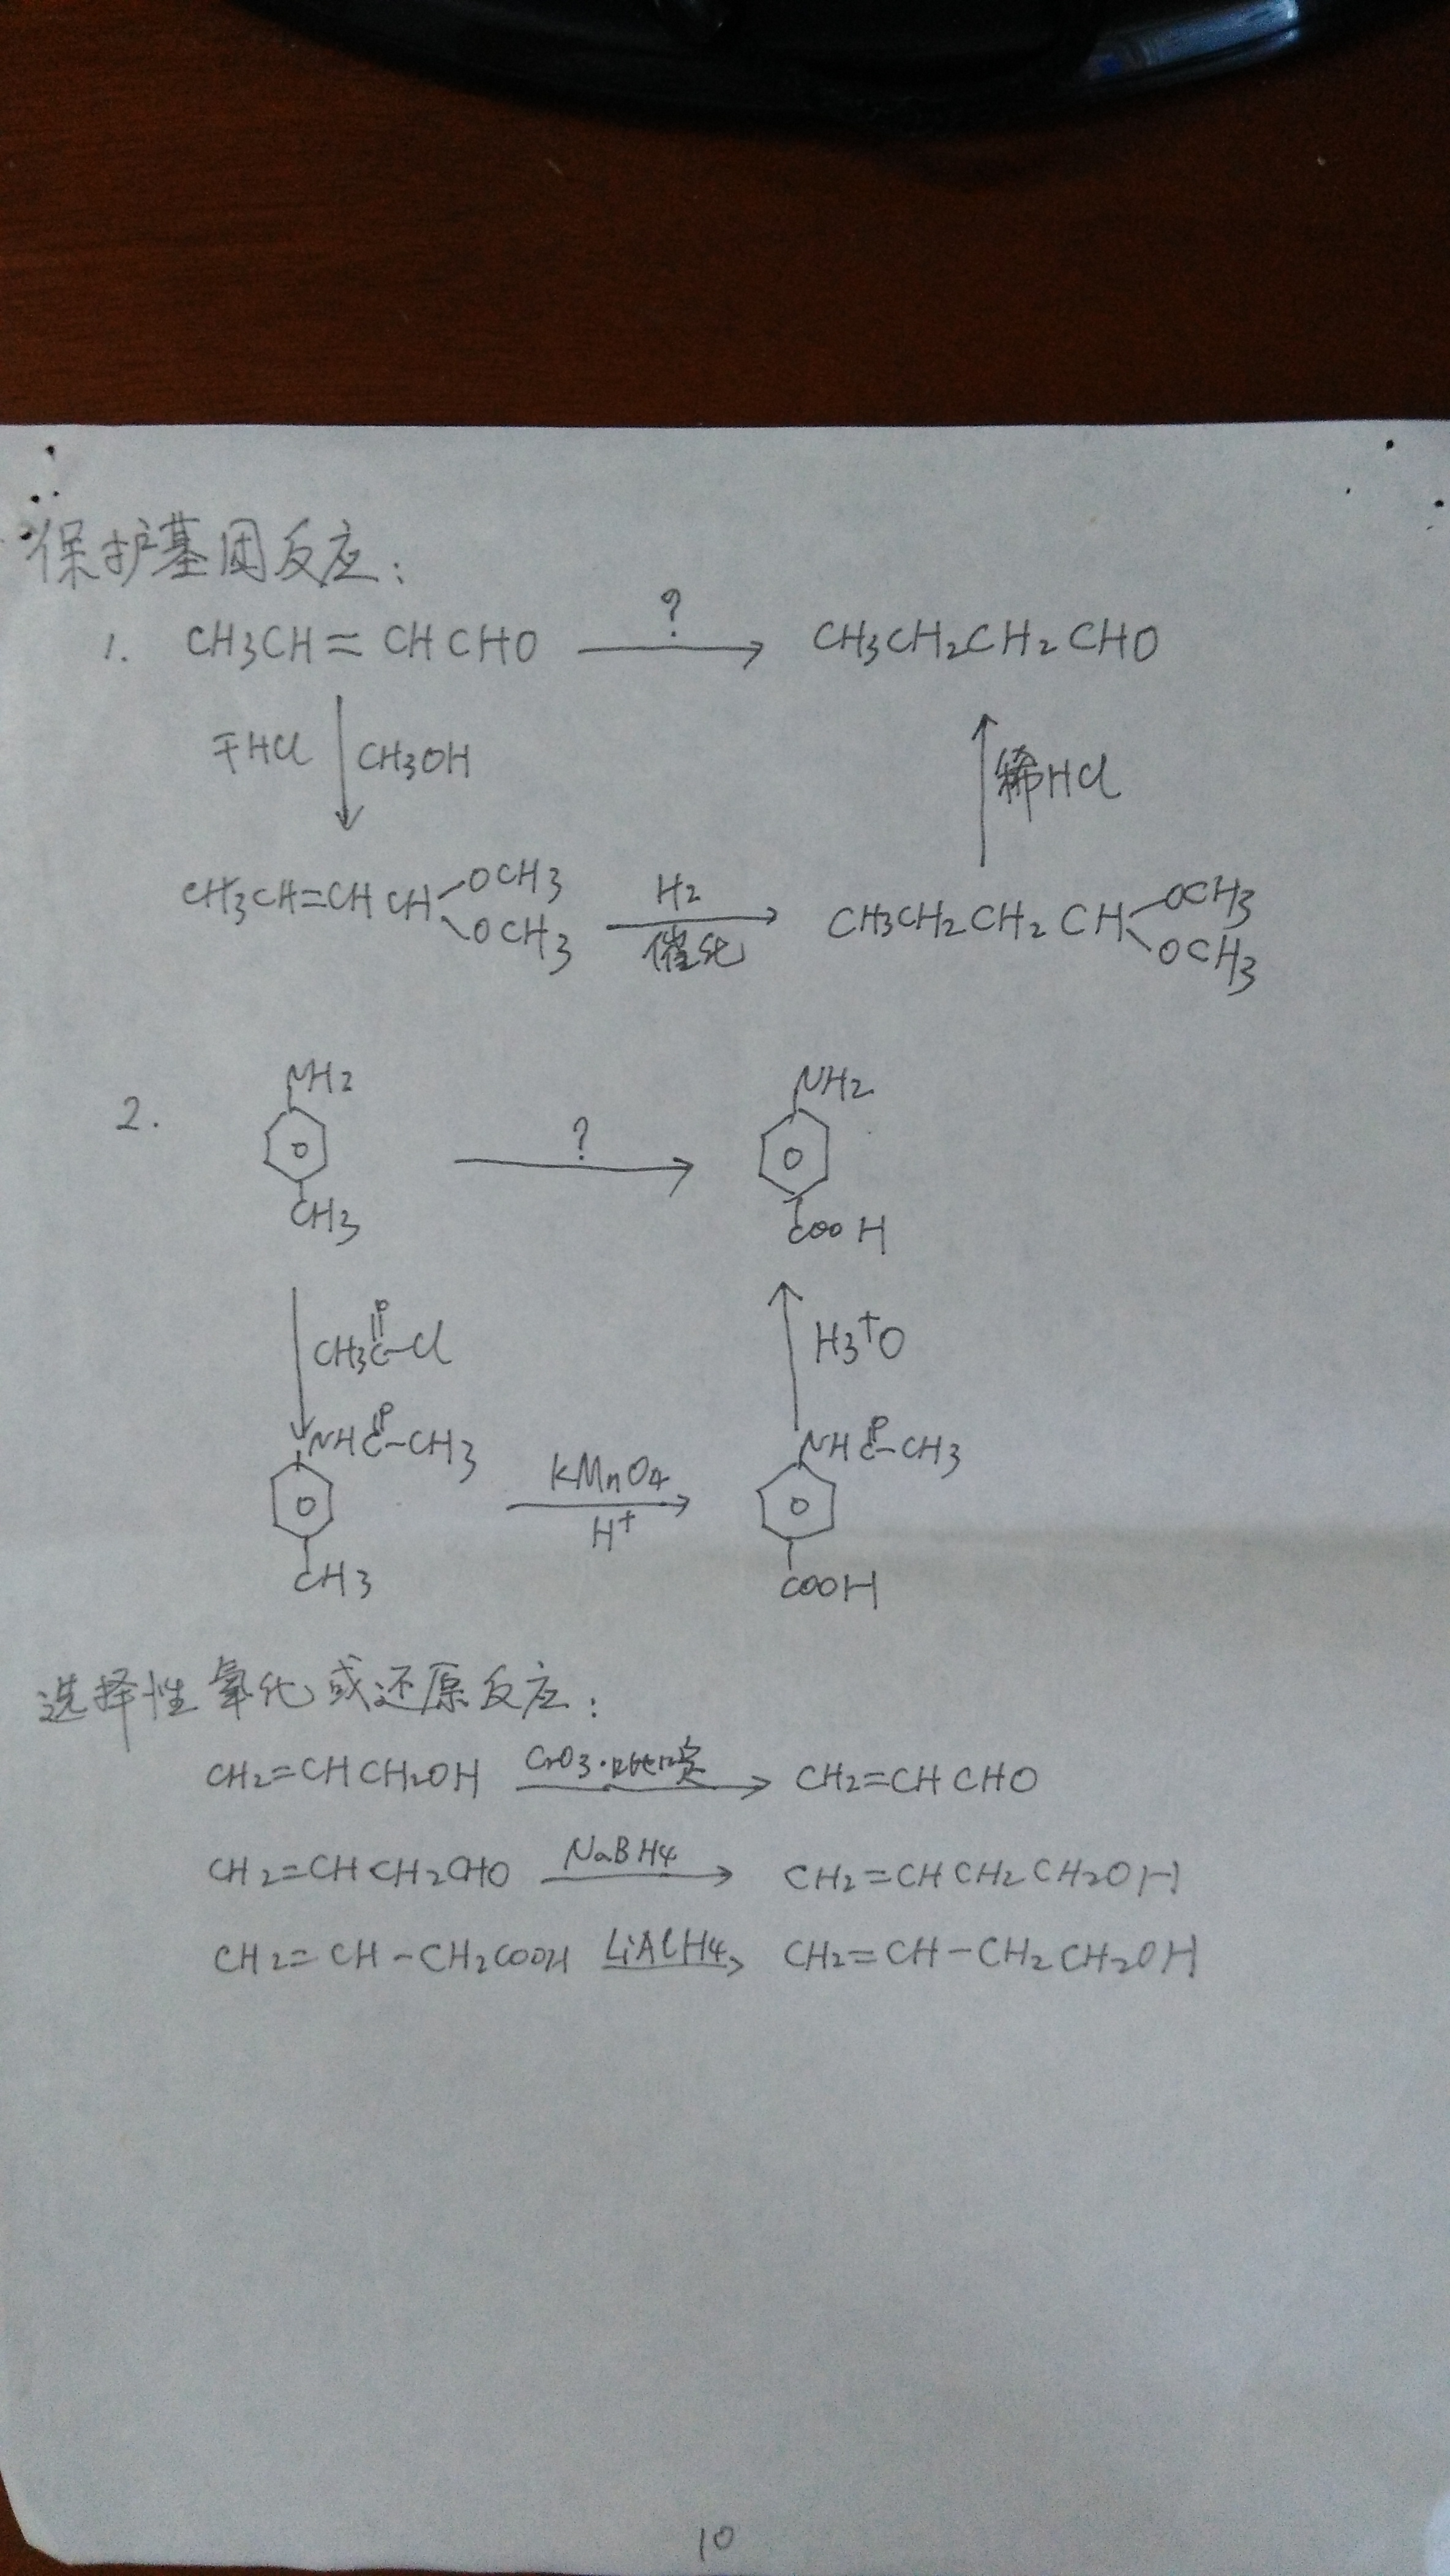 保护基团反应:
1. CH3CH=CHCHO ? CH3CH2CH2CHO
干HCl CH3OH 稀HCl
CH3CH=CHCH OCH3 OCH3 H2 催化 CH3CH2CH2CH OCH3 OCH3
NH2 NH2
2. ?
CH3 COOH
O
CH3C-Cl H3+O
O O
NHC-CH3 NHC-CH3
KMnO4
H+
CH3 COOH
选择性氧化或还原反应:
CH2=CHCH2OH CrO3·吡啶 CH2=CHCHO
CH2=CHCH2CHO NaBH4 CH2=CHCH2CH2OH
CH2=CH-CH2COOH LiAlH4 CH2=CH-CH2CH2OH
10